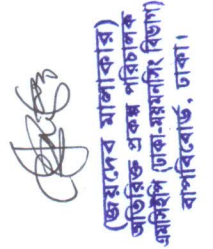 (জয়দেব মালাকার)
অতিরিক্ত প্রকল্প পরিচালক
এমসিইপি (ঢাকা-ময়মনসিং বিভাগ)
বাপবিবোর্ড, ঢাকা।